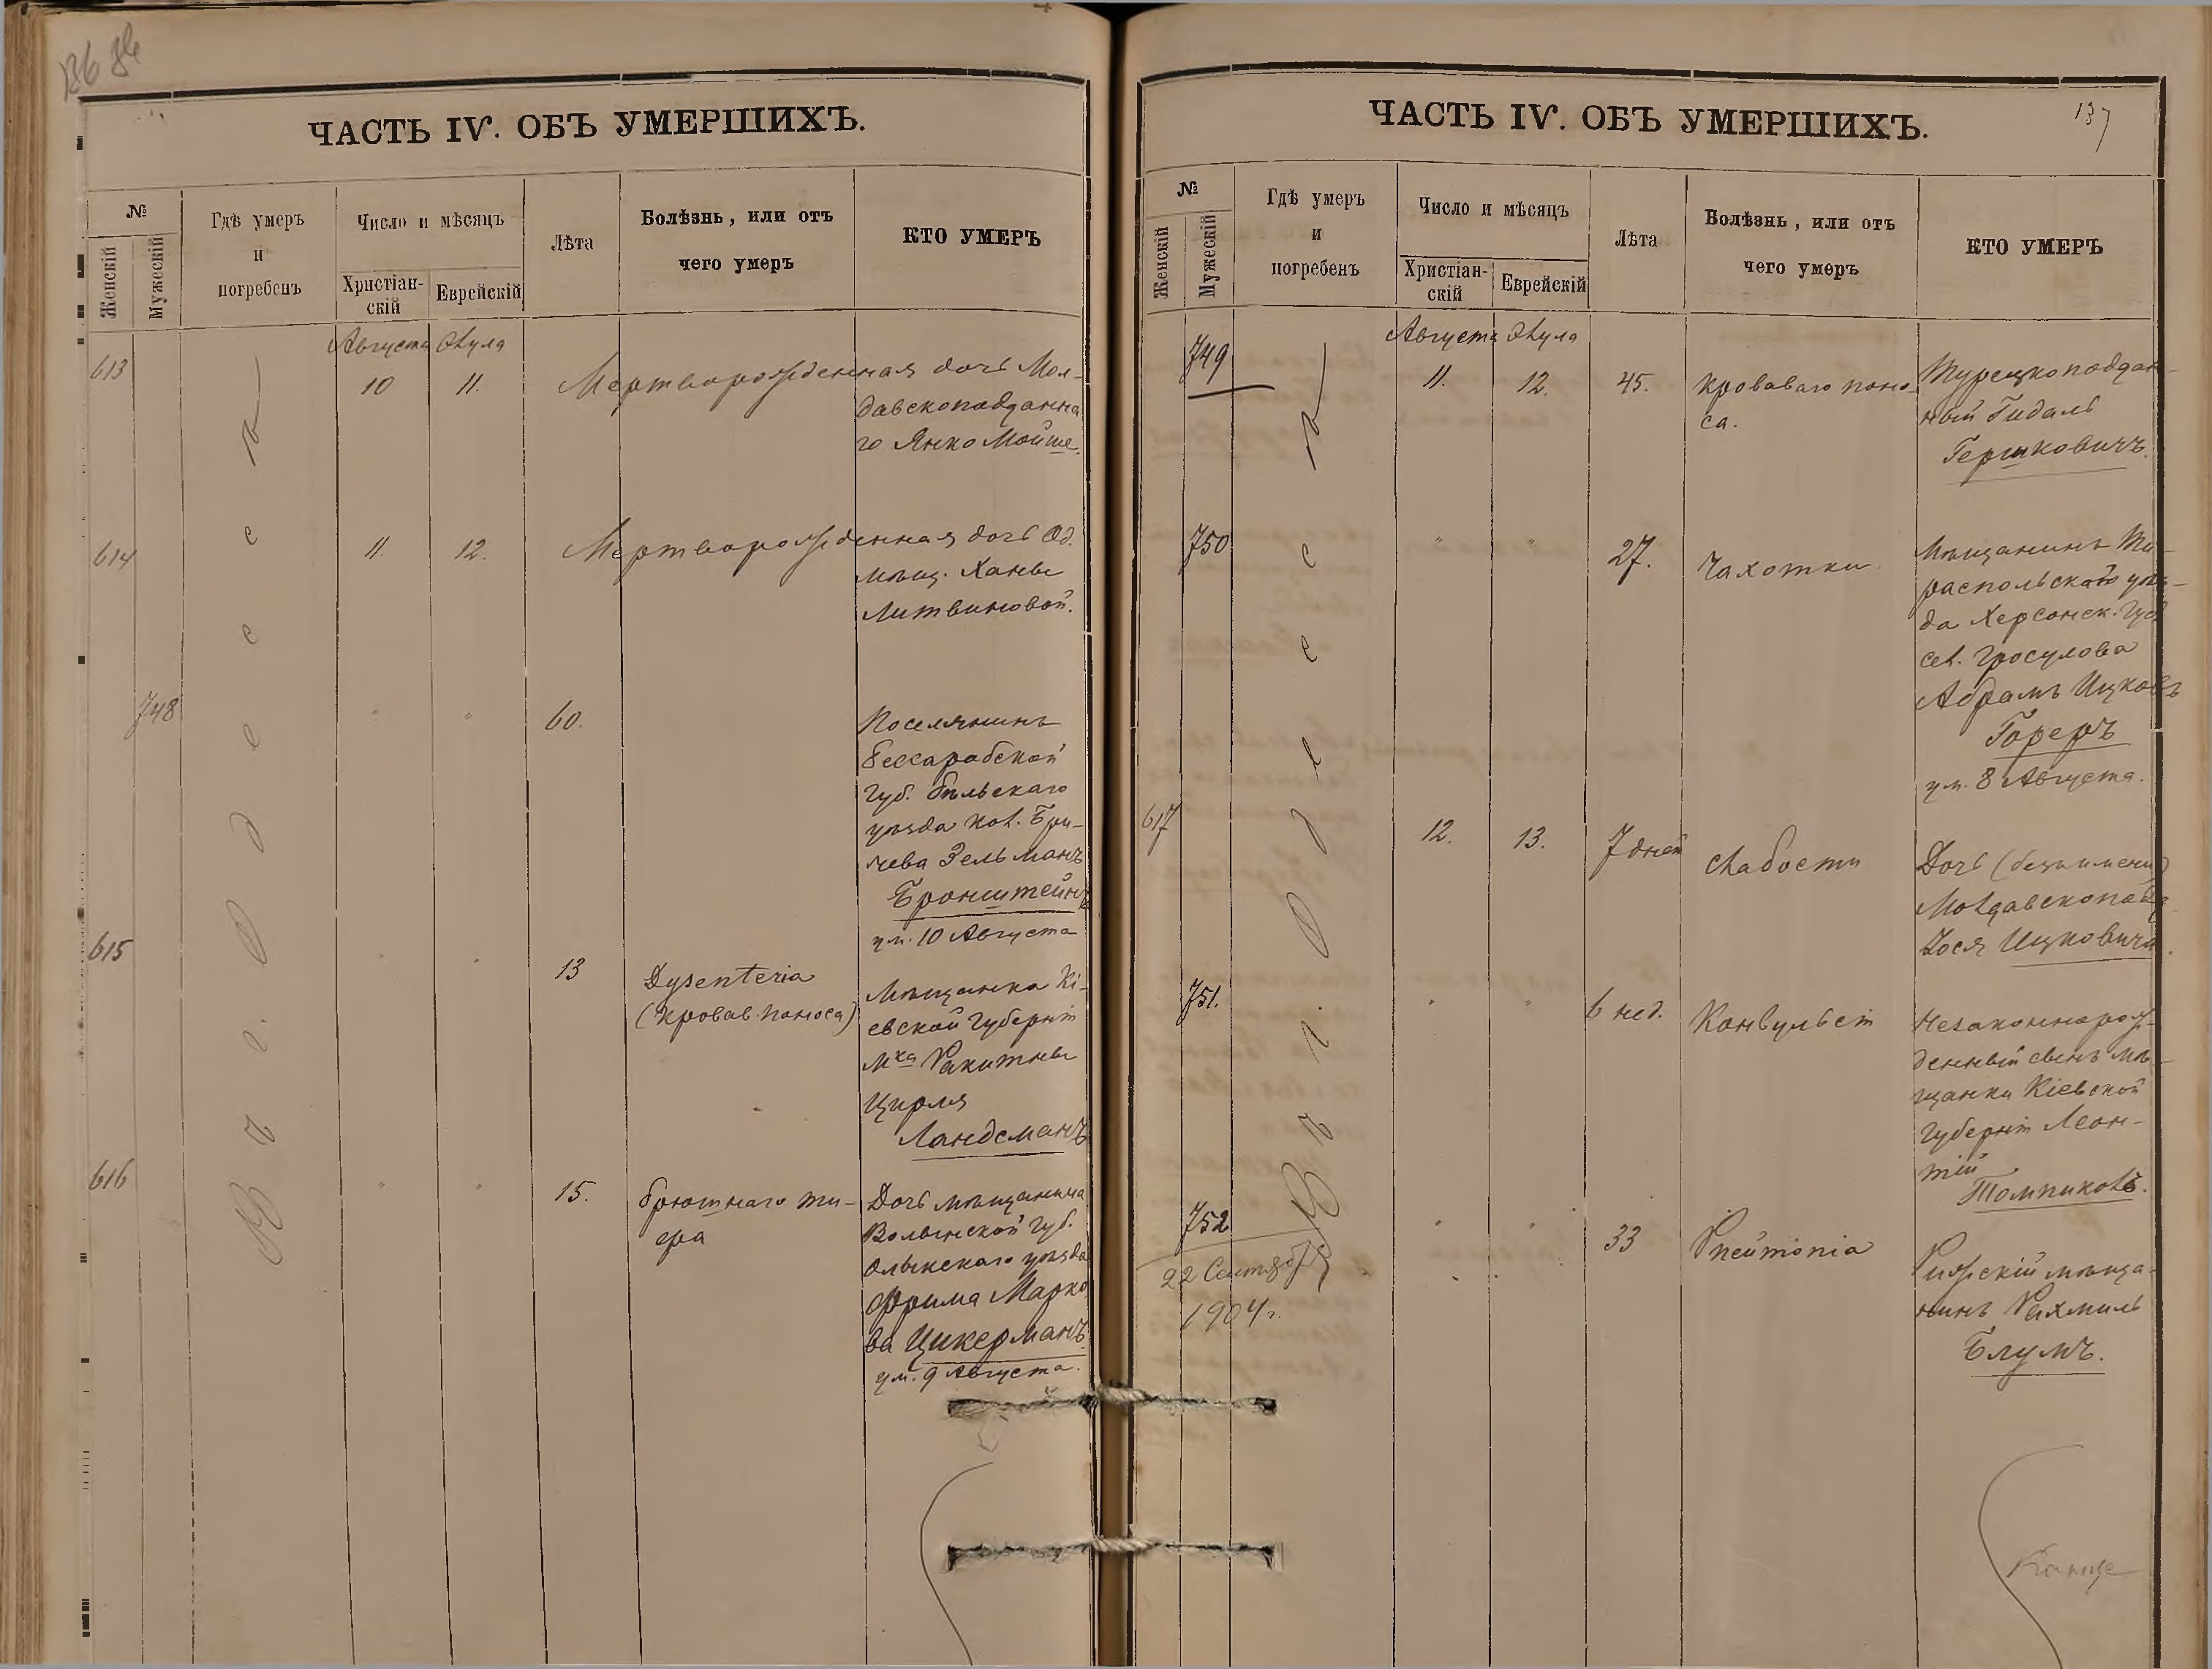 136
ЧАСТЬ IV. ОБЪ УМЕРШИХЪ.
№
Женскій
Мужескій
Гдѣ умеръ
и
погребенъ
Число и мѣсяцъ
Христіан-
скій
Еврейскій
Лѣта
Болѣзнь, или отъ
чего умеръ
КТО УМЕРЪ
Августа Аvула
613 10 11. Мертворожденная дочь Мол-
давскоподданна
го Янко Мойше.
614 11. 12. Мертворожденная дочь Од.
мѣщ. Ханы
Литвиновой.
748 " " 60. Поселянинъ
Бессарабской
Губ. Бѣльскаго
уѣзда кол. Бри-
чева Зельманъ
Бронштейнъ
ум. 10 Августа
615 " " 13 Dysenteria Мѣщанка Кі-
(кровав. поноса) евской Губерніи
мка Ракитны
Цирля
Ландсманъ
616 " " 15. брюшнаго ти- Дочь мѣщанина
фа Волынской Губ.
Олыкскаго уѣзда
Фрима Марко
ва Цикерманъ
ум. 9 Августа.
Въ г. Одессѣ
137
ЧАСТЬ IV. ОБЪ УМЕРШИХЪ.
№
Женскій
Мужескій
Гдѣ умеръ
и
погребенъ
Число и мѣсяцъ
Христіан-
скій
Еврейскій
Лѣта
Болѣзнь, или отъ
чего умеръ
КТО УМЕРЪ
Августа Аvула
749 11. 12. 45. кроваваго поно- Турецкоподдан-
са. ный Гидаль
Гершковичъ.
750 " " 27. Чахотки Мѣщанинъ Ти-
распольскаго уѣз-
да Херсонск. Губ.
сел. Гросулова
Абрамъ Ицковъ
Гореръ
ум. 8 Августа.
617 12. 13. 7 дней слабости Дочь (безъ имени)
Молдавскопод
Іося Ицковича.
751. " " 6 нед. Конвульсій Незаконнорож-
денный сынъ мѣ-
щанки Кіевской
Губерніи Леон-
тій
Толпиковъ.
752 " " 33 Pneumonia Рижскій мѣща-
нинъ Рахмиль
Блумъ.
22 Сентября
1904 г.
Въ г. Одессѣ